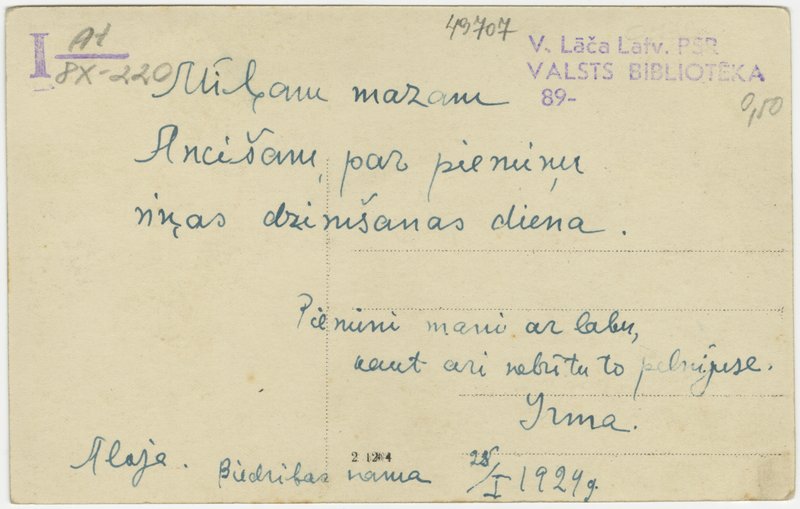 49707
I A1
8X-220
V. Lāča Latv. PSR
VALSTS BIBLIOTĒKA
89-
0,50
Mīļam mazam
Ancišam, par piemiņu
viņas dzimšanas diena.
Piemini mani ar labu,
kaut ari nebūtu to pelnījuse.
Irma.
2 1204
Aloja. Biedribas nama 28/I 1924g.